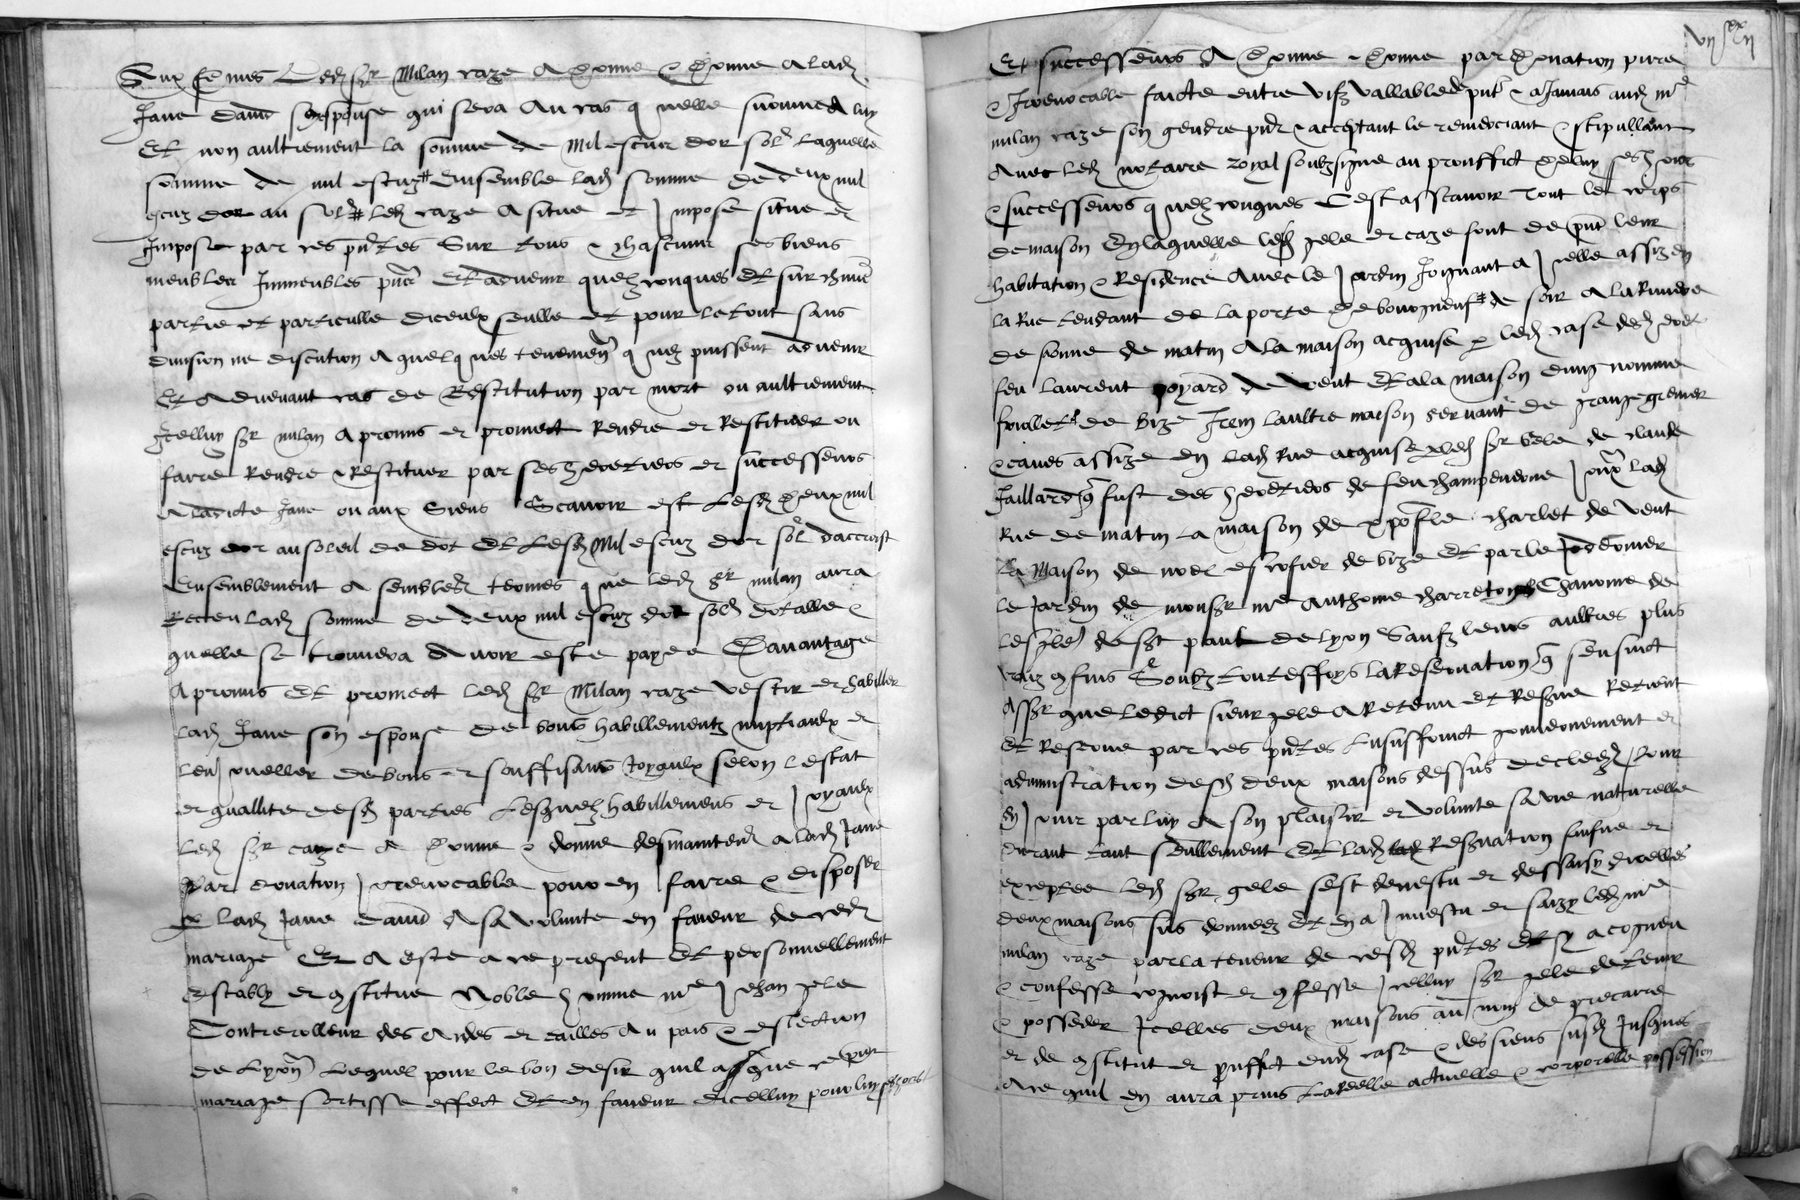 Aux femmes Ledit sr Milan caze A donne & donne a lad
Jane david sespouse qui sera Au cas q icelle survive A luy
Et non aultrement la somme de Mil escuz dor sol Laquelle
somme de mil escuz Ensemble lad somme de deux mil
escuz dor au sol led caze A situe et Impose situe et
Impose par ces pntes Sur tous & chascuns ses biens
meubles Immeubles pns Et advenir quelzconques Et sur chune
partie et particulle diceulx seulle et pour le tout sans
division ne discution A quelques tenementz q uez puissent advenir
Et Advenant cas de Restitution par mort ou aultrement
Icelluy sr milan A promis et promect Rendre et Restituer ou
faire Rendre & Restituer par ses heretiers et successeurs
A ladicte Jane ou aux Siens Scavoir est Lesd deux mil
escuz dor au soleil de dot Et Lesd Mil escuz dor sol daccroist
Ensemblement A semblables termes que led sr milan aura
Receu lad somme de deux mil escuz dor sol dotalle &
quelle se trouvera Avoir este payee Davantage
A promis Et promect led sr Milan caze vestir et habiller
lad Jane son espouse de bons habillementz nuptiaulx et
Len Joueller de bons et souffisans Joyaulx selon lestat
et quallite desd parties Lesquelz habillemens et Joyaulx
Led sr caze A donne & donne desmaintent a lad Jane
Par donation Irrevocable pour en faire & disposer
p lad Jane david A sa volunte en faveur de ced
mariage Et A este a ce present Et personnellement
Estably et constitue Noble homme me Jehan gele
Contrerolleur des Aides et tailles Au pais & eslection
de Lyon Lequel pour le bon desir quil a que ce pnt
mariage sortisse effect Et en faveur dicelluy pour luy ses hoirs
Et successeurs A donne & donne par donation pure
& Irrevocable faicte entre vifz vallable de pnt & a Jamais aud me
milan caze son gendre pnt & acceptant le remerciant & stipullant
Avec led notaire royal soubzsigne au prouffict de luy ses hoirs
& successeurs quelzconques Cest asscavoir Tout le corps
de maison En laquelle lesd gele et caze font de pnt leur
habitation & Residence Avec le Jardin Joignant a Icelle assize en
la Rue tendant de la porte de bourgneuf de soir A la Riviere
de sonne de matin A la maison acquise p led case desd hoirs
feu laurent poyard de vent Et a la maison dung nomme
de bize Item laultre maison servant de grange grenier
& caves assize en lad Rue acquise p led sr gele de claude
Jaillard que fust des heretiers de feu Jouxte lad
Rue de matin La maison de charlet de vent
La Maison de noel escofier de bize Et par le derrier
le Jardin de monsr me Anthoine charreton Chanoine de
Lesglise de st paul de Lyon Saufz leurs aultres plus
vraiz confins Soubz toutesfoys la Reservation que sensuict
Assr que ledict sieur gele A Retenu et Resgne Retient
Et Reserve par ces pntes Lususfruict gouvernement et
administration desd deux maisons dessus declerez pour
en Jouir par luy A son plaisir et volunte sa vie naturelle
durant tant seullement Et lad Resgnation finye et
exceptee led sr gele sest devestu et dessaisy dicelles
deux maisons sus donnees Et en a Investu et saizy led me
milan caze par la teneur de cesd pntes Et sy a cogneu
& confesse cognoist et confesse Icelluy sr gele de tenir
& posseder Icelles deux maisons au nom de precaire
et de constitut et prouffit dud case & des siens susd Jusques
A ce quil en aura prins La Reelle actuelle & corporelle possession